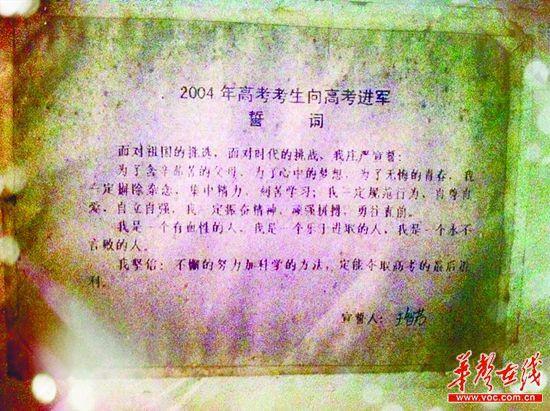 2004年高考考生向高考进军
誓 词
面对祖国的挑选，面对时代的挑战，我庄严宣誓：
为了含辛茹苦的父母，为了心中的梦想，为了无悔的青春，我
一定摒除杂念，集中精力，刻苦学习；我一定规范行为，自尊自
爱，自立自强，我一定振奋精神，顽强拼搏，勇往直前。
我是一个有血性的人，我是一个乐于进取的人，我是一个永不
言败的人。
我坚信：不懈的努力加科学的方法，定能夺取高考的最后胜
利。
宣誓人：
华声在线
www.voc.com.cn